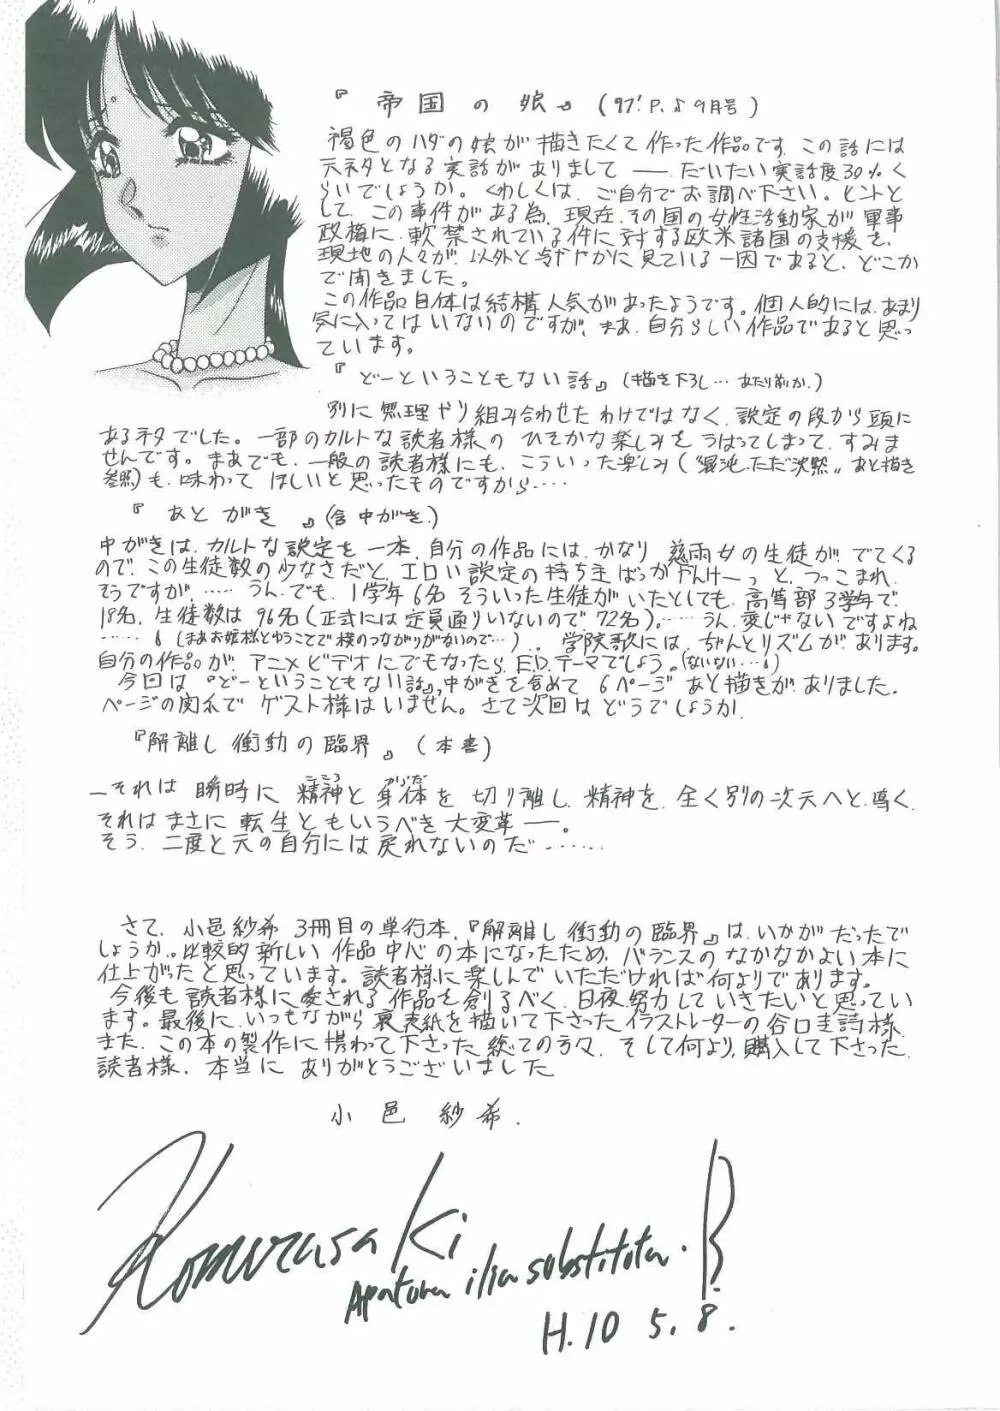 『 帝国の娘 』 (97' P.♪9月号)
褐色のハダの娘が描きたくて作った作品です。この話には
元ネタとなる実話がありまして ── だいたい実話度30%く
らいでしょうか。くわしくは、ご自分でお調べ下さい。ヒントと
して、この事件がある為、現在、その国の女性活動家が軍事
政権に、軟禁されている件に対する欧米諸国の支援を、
現地の人々が、以外と冷ややかに見ている一因であると、どこか
で聞きました。
この作品自体は結構人気があったようです。個人的には、あまり
気に入ってはいないのですが、まぁ、自分らしい作品であると思っ
ています。
『どーということもない話』(描き下ろし…あたり前か。)
別に無理やり組み合わせたわけではなく、設定の段から頭に
あるネタでした。一部のカルトな読者様の ひそかな楽しみを うばってしまって、すみま
せんです。まあでも、一般の読者様にも、こういった楽しみ(“混沌、ただ沈黙„ あと描き
参照)も、味わって ほしいと思ったものですから……
『 あとがき 』(含 中がき。)
中がきは、カルトな設定を一本、自分の作品には、かなり 慈雨女の生徒が でてくる
ので、この生徒数の少なさだと、エロい設定の持ち主ばっかやんけーっ と、つっこまれ
そうですが、…… うん、でも、1学年6名 そういった生徒がいたとしても、高等部3学年で
18名、生徒数は96名(正式には定員通りいないので72名)。…… うん、変じゃないですよね
……。(まあお嬢様とゆうことで横のつながりがないので…)。. 学院歌には、ちゃんとリズムがあります。
自分の作品が、アニメビデオにでもなったら、E.D.テーマでしょう。(ないない…)
今回は『どーということもない話』、中がきを含めて 6ページ あと描きがありました。
ページの関係で ゲスト様はいません。さて次回はどうでしょうか
『解離し衝動の臨界』(本書)
―それは 瞬時に 精神と身体を 切り離し、精神を、全く別の次元へと、導く、
こころ からだ
それは まさに 転生ともいうべき 大変革―。
そう、二度と元の自分には戻れないのだ……
さて、小邑紗希 3冊目の単行本、『解離し衝動の臨界』は、いかがだったで
しょうか。比較的新しい 作品中心の本になったため、バランスの なかなかよい本に
仕上がったと思っています。読者様に楽しんでいただければ何よりであります。
今後も読者様に愛される作品を創るべく、日夜努力していきたいと思ってい
ます。最後に、いつもながら裏表紙を描いて下さったイラストレーターの谷口圭詩様、
また、この本の製作に携わって下さった 総ての方々、そして何より、購入して下さった
読者様、本当に ありがとうございました
小邑 紗希.
Komurasaki
Apatura ilia substituta. B.
H.10 5. 8.